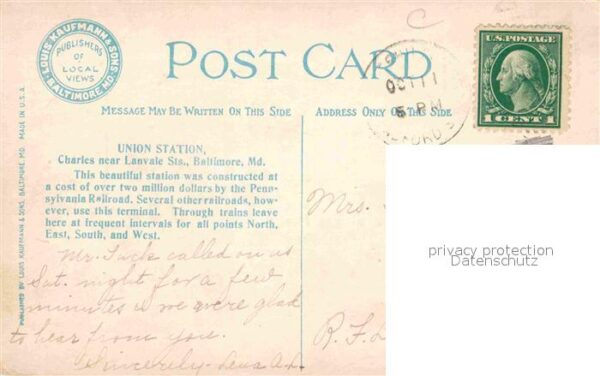 LOUIS KAUFMANN & SONS.
BALTIMORE MD.
PUBLISHERS
OF
LOCAL
VIEWS
POST CARD
U.S. POSTAGE
1 CENT 1
OCT 11
5 PM
MESSAGE MAY BE WRITTEN ON THIS SIDE
ADDRESS ONLY ON THIS SIDE
PUBLISHED BY LOUIS KAUFMANN & SONS, BALTIMORE, MD. MADE IN U.S.A.
UNION STATION,
Charles near Lanvale Sts., Baltimore, Md.
This beautiful station was constructed at
a cost of over two million dollars by the Penn-
sylvania Railroad. Several other railroads, how-
ever, use this terminal. Through trains leave
here at frequent intervals for all points North,
East, South, and West.
Mr. called on us
Sat. night for a few
minutes & we were glad
to hear from you.
Sincerely-
Mrs.
R.F.D
privacy protection
Datenschutz